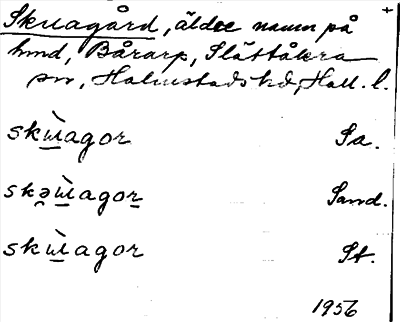 Skuagård, äldre namn på
hmd, Bårarp, Slättåkra
sn, Halmstads hd, Hall. l.
skùagor Sa.
skəùagor Sand.
skùagor St.
1956